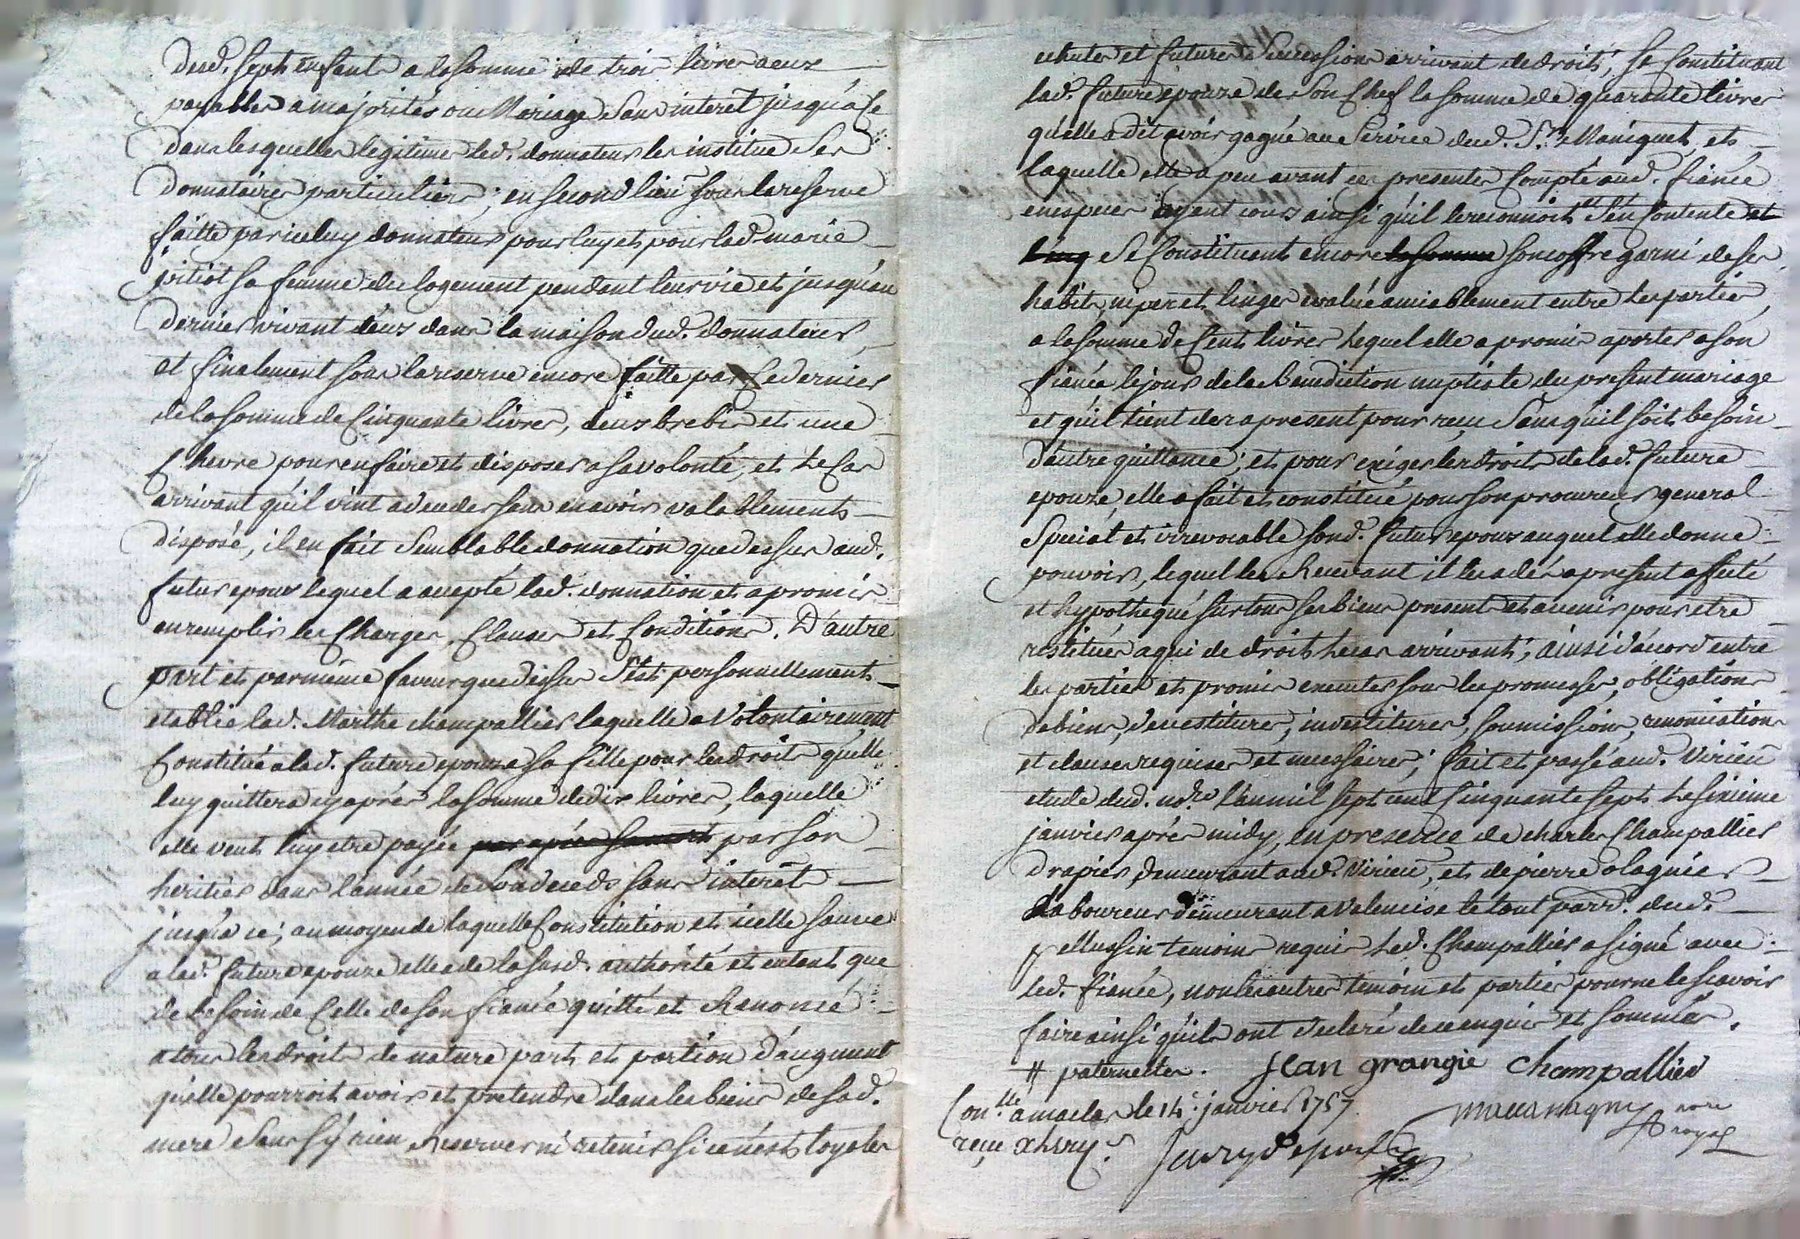 dusd. sept enfants a la somme de trois livres a eux
payables a majorités ou Mariage sans interet jusqu'a ce
dans lesquelles legitimes led. donnateur les institue Ses
donnataires particuliers; en second lieu sous la reserve
faitte par iceluy donnateur pour luy et pour lad. marie
pitiot sa femme de logement pendant leur vie et jusqu'au
dernier vivant deux dans la maison dud. donnateur,
et finalement sous la reserve encore faitte par ce dernier
de la somme de Cinquante livres, deux brebis et une
Chevre pour en faire et disposer a sa volonté, et le Cas
arrivant qu'il vint a deceder sans en avoir valablement
disposé, il en fait Semblable donnation que dessus aud.
futur epoux lequel a accepté lad. donnation et a promis
en remplir les Charges, Clauses et Conditions. D'autre
part et par même faveur que dessus s'est personnellement
etablie lad. Marthe champallier laquelle a Volontairement
Constitué a lad. future epouze sa fille pour les droits qu'elle
luy quittera cy après la somme de dix livres, laquelle
elle veut luy etre payée par après sa mort par son
heritier dans l'année de son deceds sans interêt
jusqu'a ce; au moyen de laquelle Constitution et icelle sauve
a lad. future epouze elle a de la susd. authorité et entant que
de besoin de Celle de son fiancé quitté et Renoncé
a tous les droits de nature part et portion d'augment
qu'elle pourroit avoir et pretendre dans les biens de sad.
mere Sans s'y rien Reserver ni retenir si ce n'est loyales
echutes et futures Successions arrivant de droits; se Constituant
lad. future epouze de Son Chef la somme de quarante livres
qu'elle a dit avoir gagné au Service dud. Sr. Maniquet, et
laquelle elle a peu avant ces presentes Compté aud. fiancé
en especes ayent cours ainsi qu'il le reconnoit et s'en Contente et
Se Constituant encore la somme son coffre garni de ses
habits, nipes et linges evalué amiablement entre les parties,
a la somme de Cents livres lequel elle a promis aporter a son
fiancé le jour de la Benediction nuptiale du present mariage
et qu'il tient des a present pour reçu Sans qu'il soit besoin
d'autre quittance; et pour exiger les droits de lad. future
epouze, elle a fait et constitué pour son procureur general
Special et irrevocable sond. futur epoux auquel elle donne
pouvoir, lequel les Recevant il les a dés a present affecté
et hypothequé sur tous ses biens present et avenir pour etre
restitués a qui de droit le cas arrivant; ainsi d'accord entre
les parties et promis executer sous les promesses, obligations
de biens, devestitures, investitures, soumissions, renonciations
et clauses requises et necessaires; fait et passé aud. Virieu
etude dud. nore l'an mil sept cent Cinquante sept le sixieme
janvier après midy, en presence de charles Champallier
drapier demeurant aud. Virieu, et de pierre olagnier
Laboureur demeurant a Valencise le tout parr. dud.
pellussin temoins requis led. Champallier a signé avec
led. fiancé, non les autres temoin et parties pour ne le sçavoir
faire ainsi qu'ils ont declaré de ce enquis et sommés.
# paternelles. Jean grangie Champallier
Con.lle a maclas le 14e. janvier 1757
nore
royal